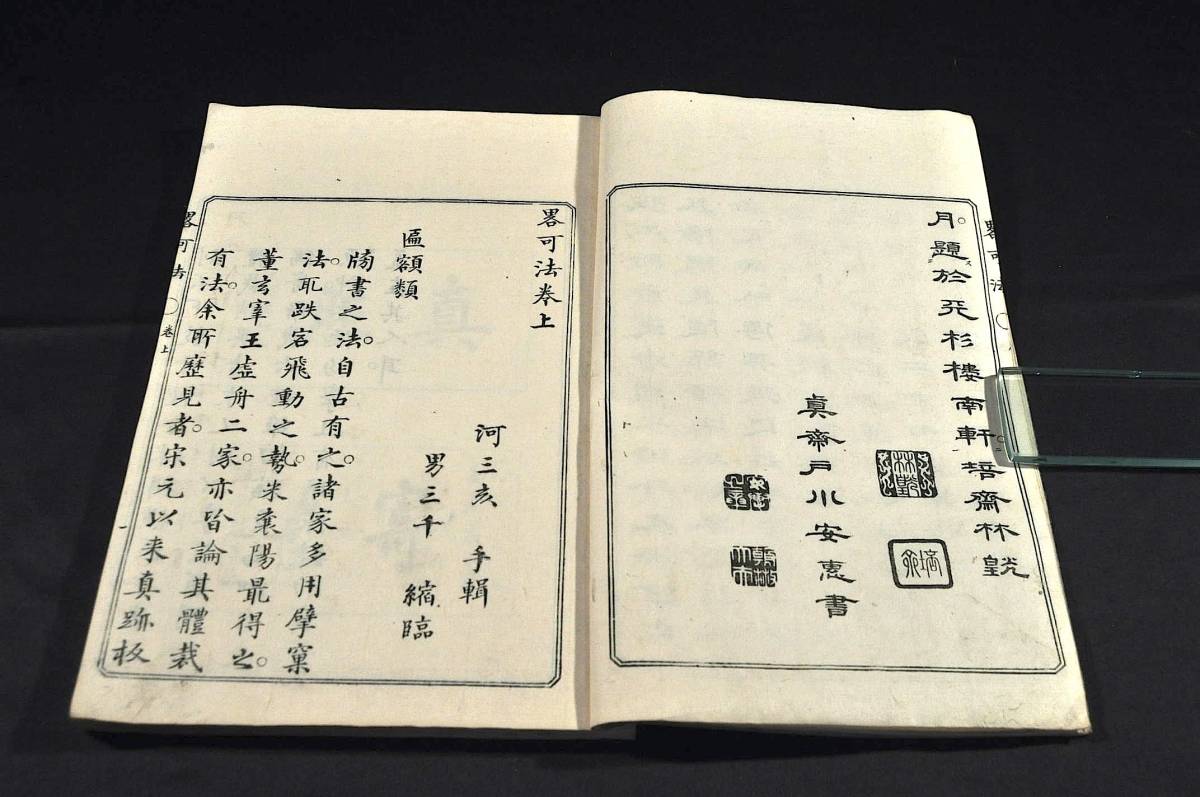 月題於天杉樓南軒培齋林皝
眞齋戸川安惠書
畧可法
畧可法卷上
河三亥 手輯
男三千 縮臨
匾額類
牓書之法。自古有之。諸家多用擘窠
法。耴跌宕飛動之勢。米襄陽最得之。
董玄宰王虛舟二家。亦皆論其體裁
有法。余所歷見者。宋元以来真跡板
畧可法 卷上